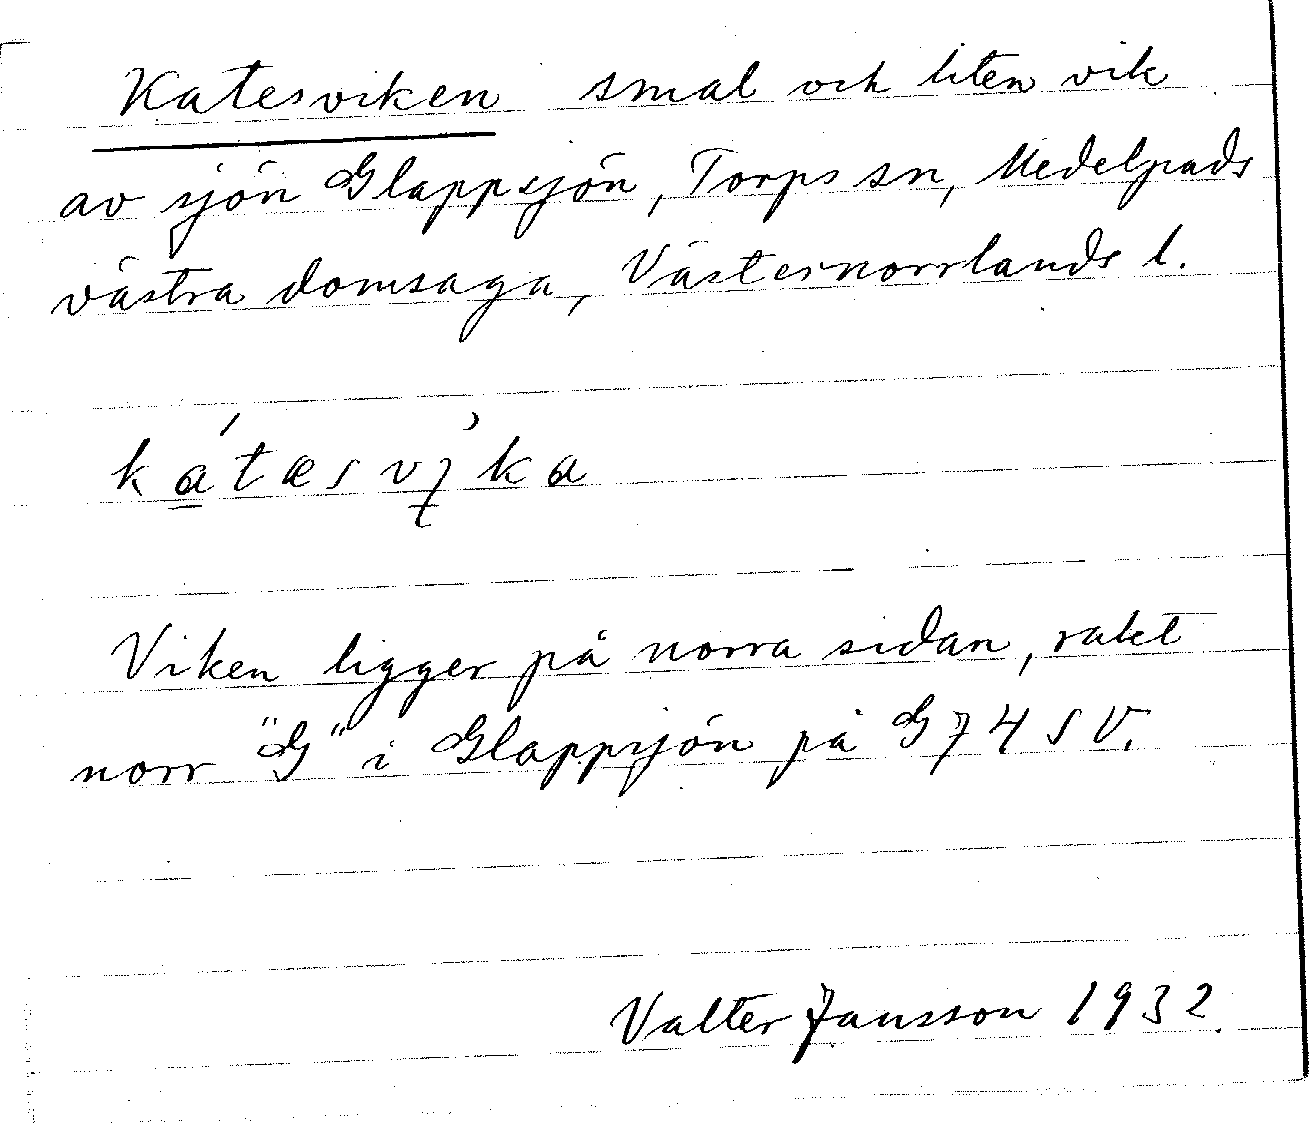 Katesviken smal och liten vik
av sjön Glappsjön, Torps sn, Medelpads
västra domsaga, Västernorrlands l.
ká̱tæsvi̱̓ka
Viken ligger på norra sidan, rakt
norr "G" i Glappsjön på G74SV.
Valter Jansson 1932.